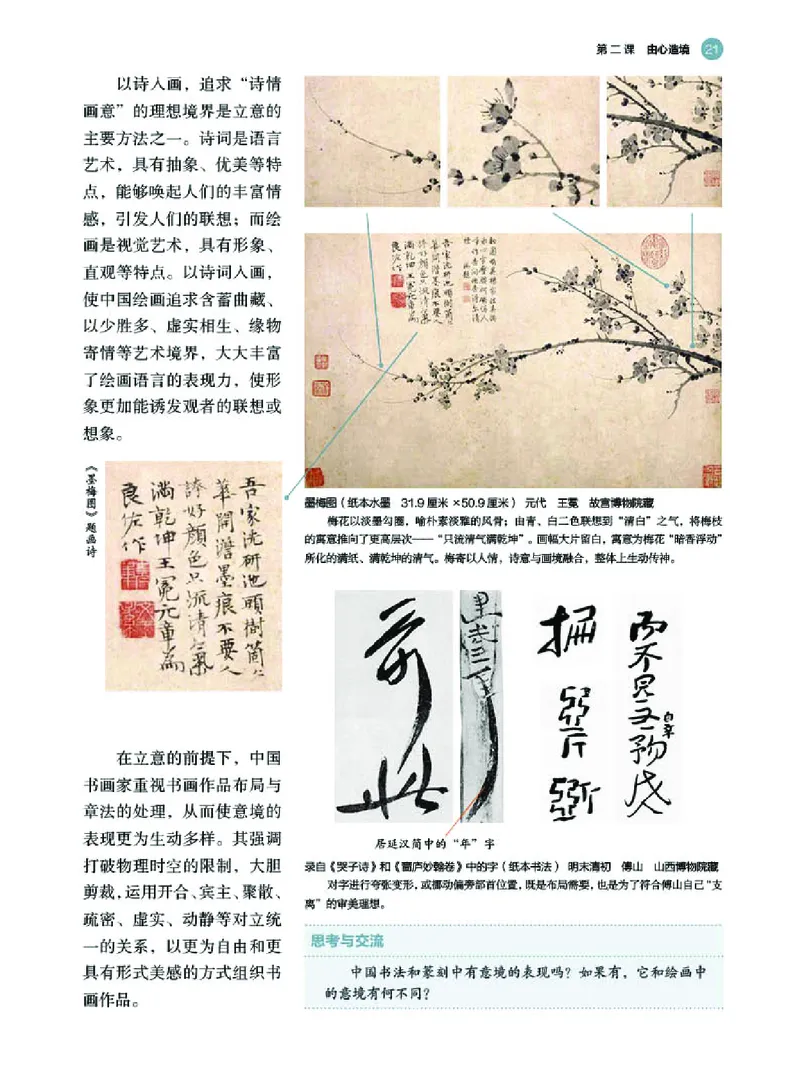 第二课 由心造境 21
以诗入画，追求“诗情
画意”的理想境界是立意的
主要方法之一。诗词是语言
艺术，具有抽象、优美等特
点，能够唤起人们的丰富情
感，引发人们的联想；而绘
画是视觉艺术，具有形象、
直观等特点。以诗词入画，
使中国绘画追求含蓄曲藏、
以少胜多、虚实相生、缘物
寄情等艺术境界，大大丰富
了绘画语言的表现力，使形
象更加能诱发观者的联想或
想象。
《墨梅图》题画诗
吾家洗研池頭樹箇〻
華開澹墨痕不要人
誇好顔色只流清氣
滿乾坤王冕元章爲
良佐作
墨梅图（纸本水墨 31.9厘米×50.9厘米） 元代 王冕 故宫博物院藏
梅花以淡墨勾圈，喻朴素淡雅的风骨；由青、白二色联想到“清白”之气，将梅枝
的寓意推向了更高层次——“只流清气满乾坤”。画幅大片留白，寓意为梅花“暗香浮动”
所化的满纸、满乾坤的清气。梅寄以人情，诗意与画境融合，整体上生动传神。
在立意的前提下，中国
书画家重视书画作品布局与
章法的处理，从而使意境的
表现更为生动多样。其强调
打破物理时空的限制，大胆
剪裁，运用开合、宾主、聚散、
疏密、虚实、动静等对立统
一的关系，以更为自由和更
具有形式美感的方式组织书
画作品。
居延汉简中的“年”字
录自《哭子诗》和《啬庐妙翰卷》中的字（纸本书法） 明末清初 傅山 山西博物院藏
对字进行夸张变形，或挪动偏旁部首位置，既是布局需要，也是为了符合傅山自己“支
离”的审美理想。
思考与交流
中国书法和篆刻中有意境的表现吗？如果有，它和绘画中
的意境有何不同？